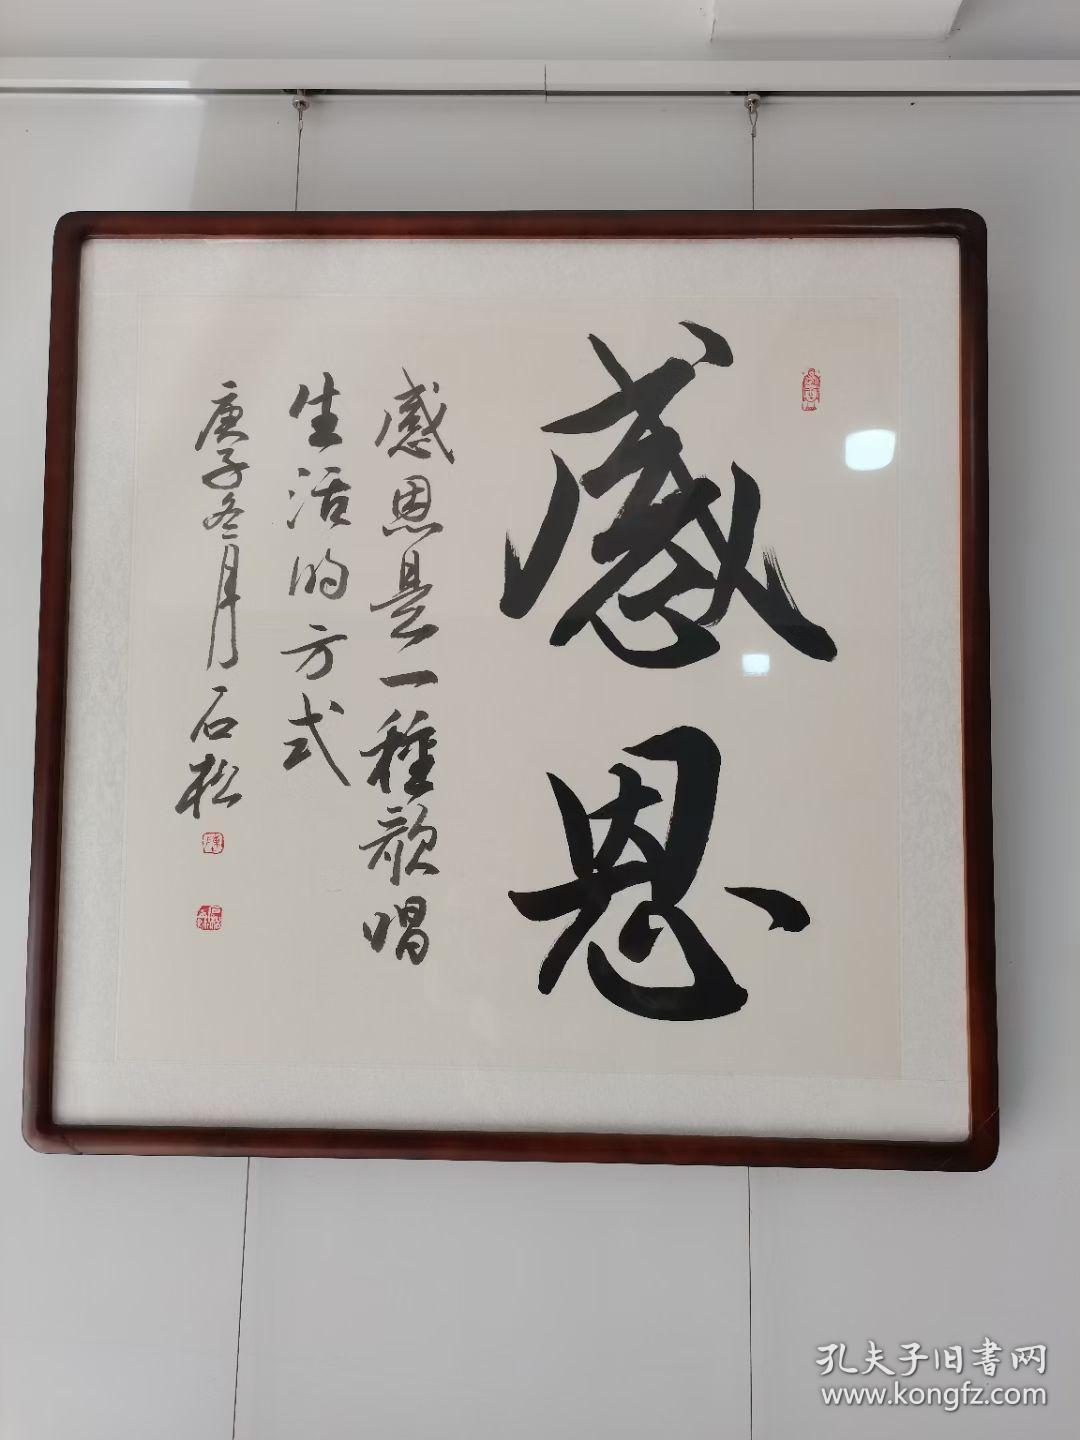 感恩
感恩是一種歌唱
生活的方式
庚子冬月石松
孔夫子旧書网
www.kongfz.com